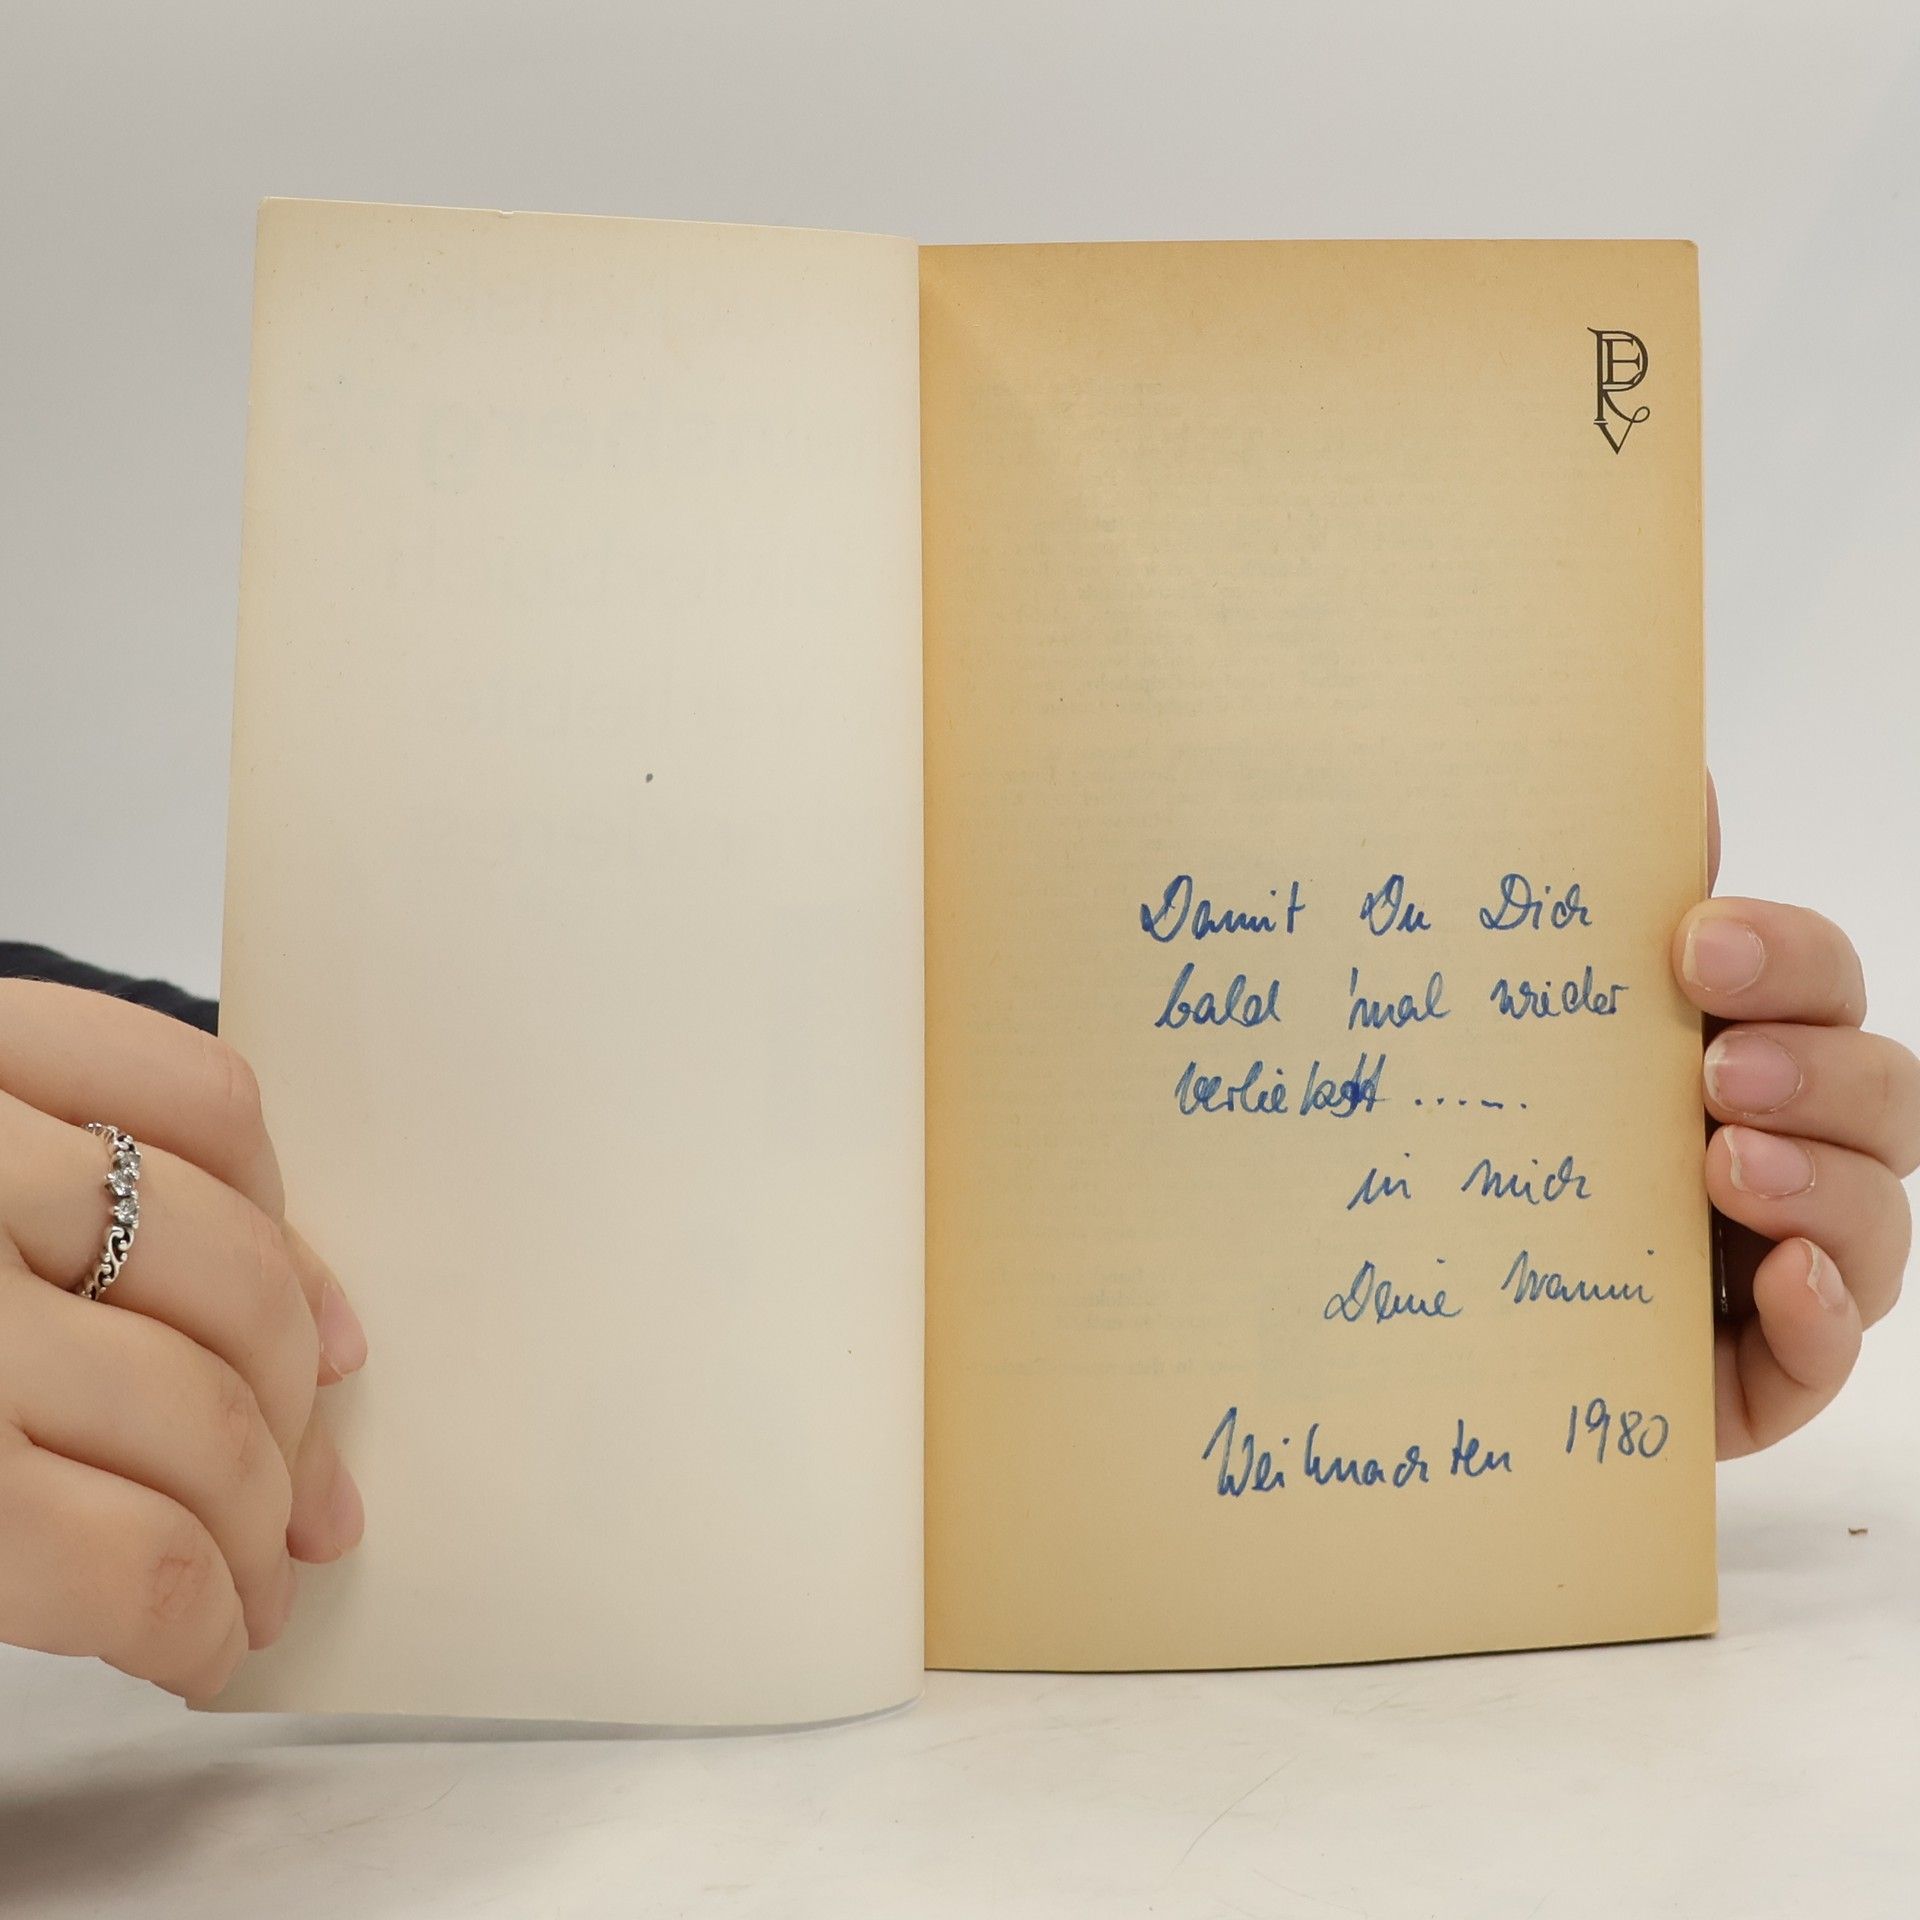 DERV
Damit Du Dich
bald 'mal wieder
verliebst ......
in mich
Deine
Weihnachten 1980